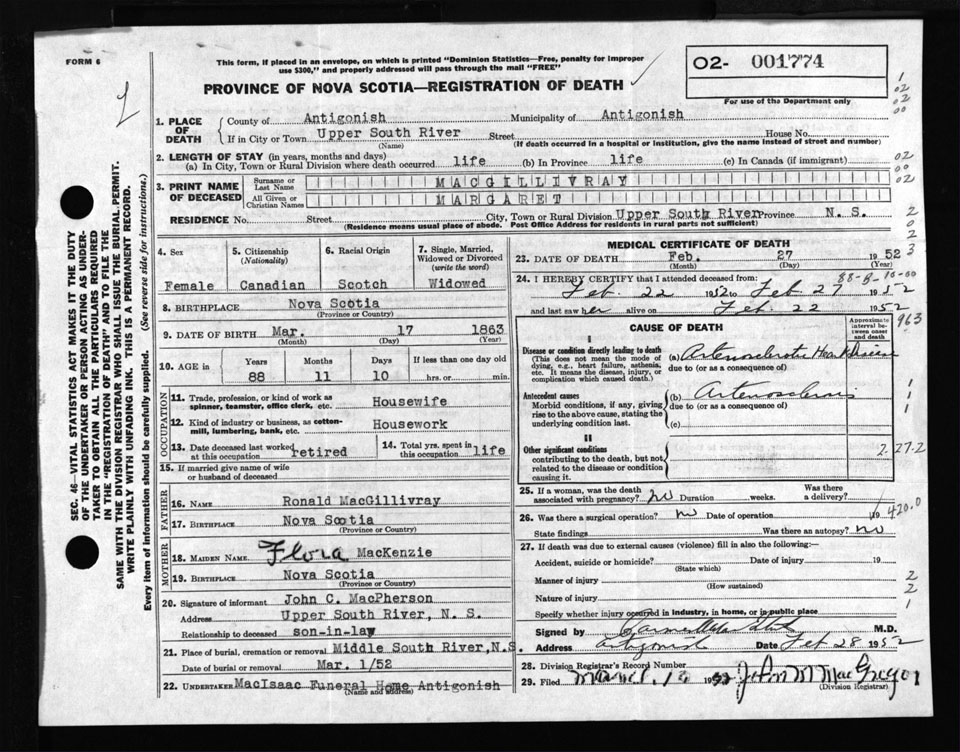 FORM 6
This form, if placed in an envelope, on which is printed "Dominion Statistics—Free, penalty for improper
use $300," and properly addressed will pass through the mail "FREE"
PROVINCE OF NOVA SCOTIA—REGISTRATION OF DEATH
O2- 001774
For use of the Department only
1. PLACE OF DEATH
County of Antigonish Municipality of Antigonish
If in City or Town Upper South River Street House No.
(Name) (If death occurred in a hospital or institution, give the name instead of street and number)
2. LENGTH OF STAY (in years, months and days)
(a) In City, Town or Rural Division where death occurred life (b) In Province life (c) In Canada (if immigrant)
3. PRINT NAME OF DECEASED
Surname or Last Name MACGILLIVRAY
All Given or Christian Names MARGARET
RESIDENCE No. Street City, Town or Rural Division Upper South River Province N. S.
(Residence means usual place of abode. Post Office Address for residents in rural parts not sufficient)
4. Sex Female
5. Citizenship (Nationality) Canadian
6. Racial Origin Scotch
7. Single, Married, Widowed or Divorced (write the word) Widowed
8. BIRTHPLACE Nova Scotia
(Province or Country)
9. DATE OF BIRTH Mar. 17 1863
(Month) (Day) (Year)
10. AGE in Years 88 Months 11 Days 10 If less than one day old hrs. or min.
OCCUPATION
11. Trade, profession, or kind of work as spinner, teamster, office clerk, etc. Housewife
12. Kind of industry or business, as cotton-mill, lumbering, bank, etc. Housework
13. Date deceased last worked at this occupation retired
14. Total yrs. spent in this occupation life
15. If married give name of wife or husband of deceased
FATHER
16. NAME Ronald MacGillivray
17. BIRTHPLACE Nova Scotia
(Province or Country)
MOTHER
18. MAIDEN NAME Flora MacKenzie
19. BIRTHPLACE Nova Scotia
(Province or Country)
20. Signature of informant John C. MacPherson
Address Upper South River, N. S.
Relationship to deceased son-in-law
21. Place of burial, cremation or removal Middle South River, N.S.
Date of burial or removal Mar. 1/52
22. UNDERTAKER MacIsaac Funeral Home Antigonish
(Name and address)
MEDICAL CERTIFICATE OF DEATH
23. DATE OF DEATH Feb. 27 1952
(Month) (Day) (Year)
24. I HEREBY CERTIFY that I attended deceased from:
Feb. 22 1952 to Feb 27 1952
and last saw her alive on Feb. 22 1952
CAUSE OF DEATH
Approximate interval between onset and death
I
Disease or condition directly leading to death
(This does not mean the mode of dying, e.g., heart failure, asthenia, etc. It means the disease, injury, or complication which caused death.)
(a) Arteriosclerotic Heart Disease
due to (or as a consequence of)
Antecedent causes
Morbid conditions, if any, giving rise to the above cause, stating the underlying condition last.
(b) Arteriosclerosis
due to (or as a consequence of)
(c)
II
Other significant conditions
contributing to the death, but not related to the disease or condition causing it.
25. If a woman, was the death associated with pregnancy? no Duration weeks. Was there a delivery?
26. Was there a surgical operation? no Date of operation 19
State findings Was there an autopsy? no
27. If death was due to external causes (violence) fill in also the following:—
Accident, suicide or homicide? Date of injury 19
(State which)
Manner of injury
(How sustained)
Nature of injury
Specify whether injury occurred in industry, in home, or in public place
Signed by M.D.
Address Antigonish Date Feb 28 1952
28. Division Registrar's Record Number
29. Filed March 1952 John M MacGregor
(Division Registrar)
963
2.27-2
420.0
SEC. 46—VITAL STATISTICS ACT MAKES IT THE DUTY
OF THE UNDERTAKER OR PERSON ACTING AS UNDER-
TAKER TO OBTAIN ALL THE PARTICULARS REQUIRED
IN THE "REGISTRATION OF DEATH" AND TO FILE THE
SAME WITH THE DIVISION REGISTRAR WHO SHALL ISSUE THE BURIAL PERMIT.
WRITE PLAINLY WITH UNFADING INK. THIS IS A PERMANENT RECORD.
Every item of information should be carefully supplied. (See reverse side for instructions.)